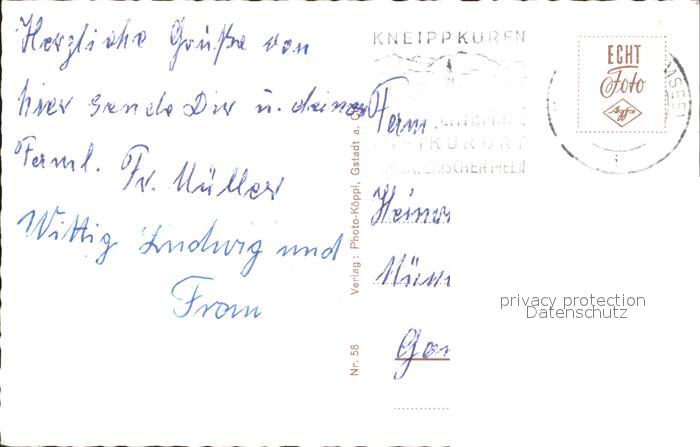 Herzliche Grüße von
hier sende Dir u. deiner
Faml. Fr. Müller
Wittig Ludwig und
Frau
Nr. 58
Verlag: Photo-Köppl, Gstadt a. C
KNEIPPKUREN
KURORT
ECHT
Foto
Agfa
Fam.
Heiner
privacy protection
Datenschutz